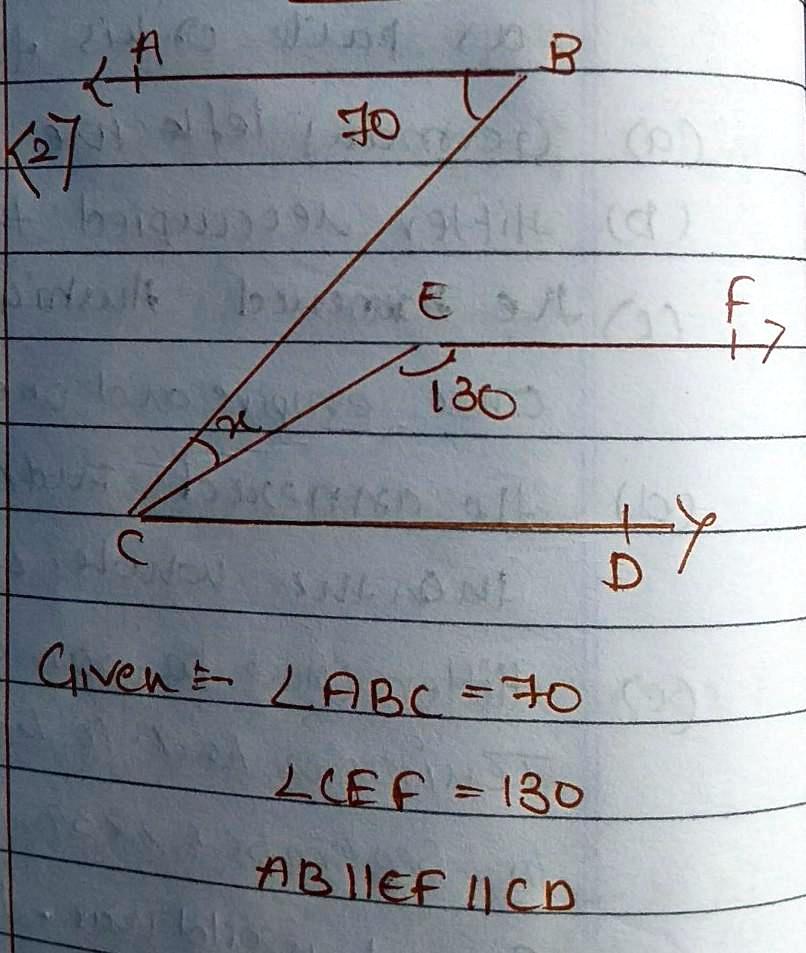 A B
<2>
70
E F
130
x
C D
Given :- ∠ABC = 70
∠CEF = 130
AB||EF||CD